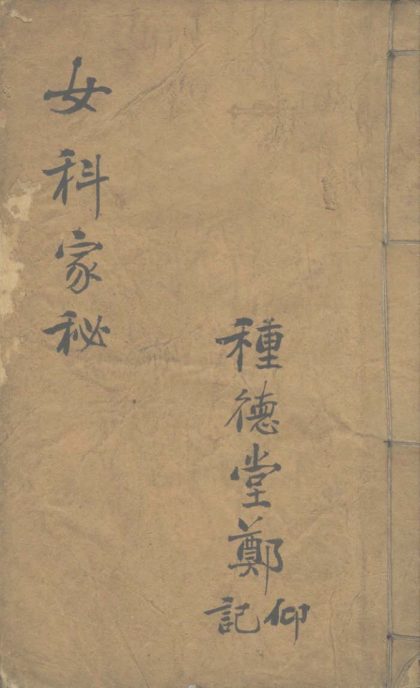 種德堂鄭仰記
女科家秘